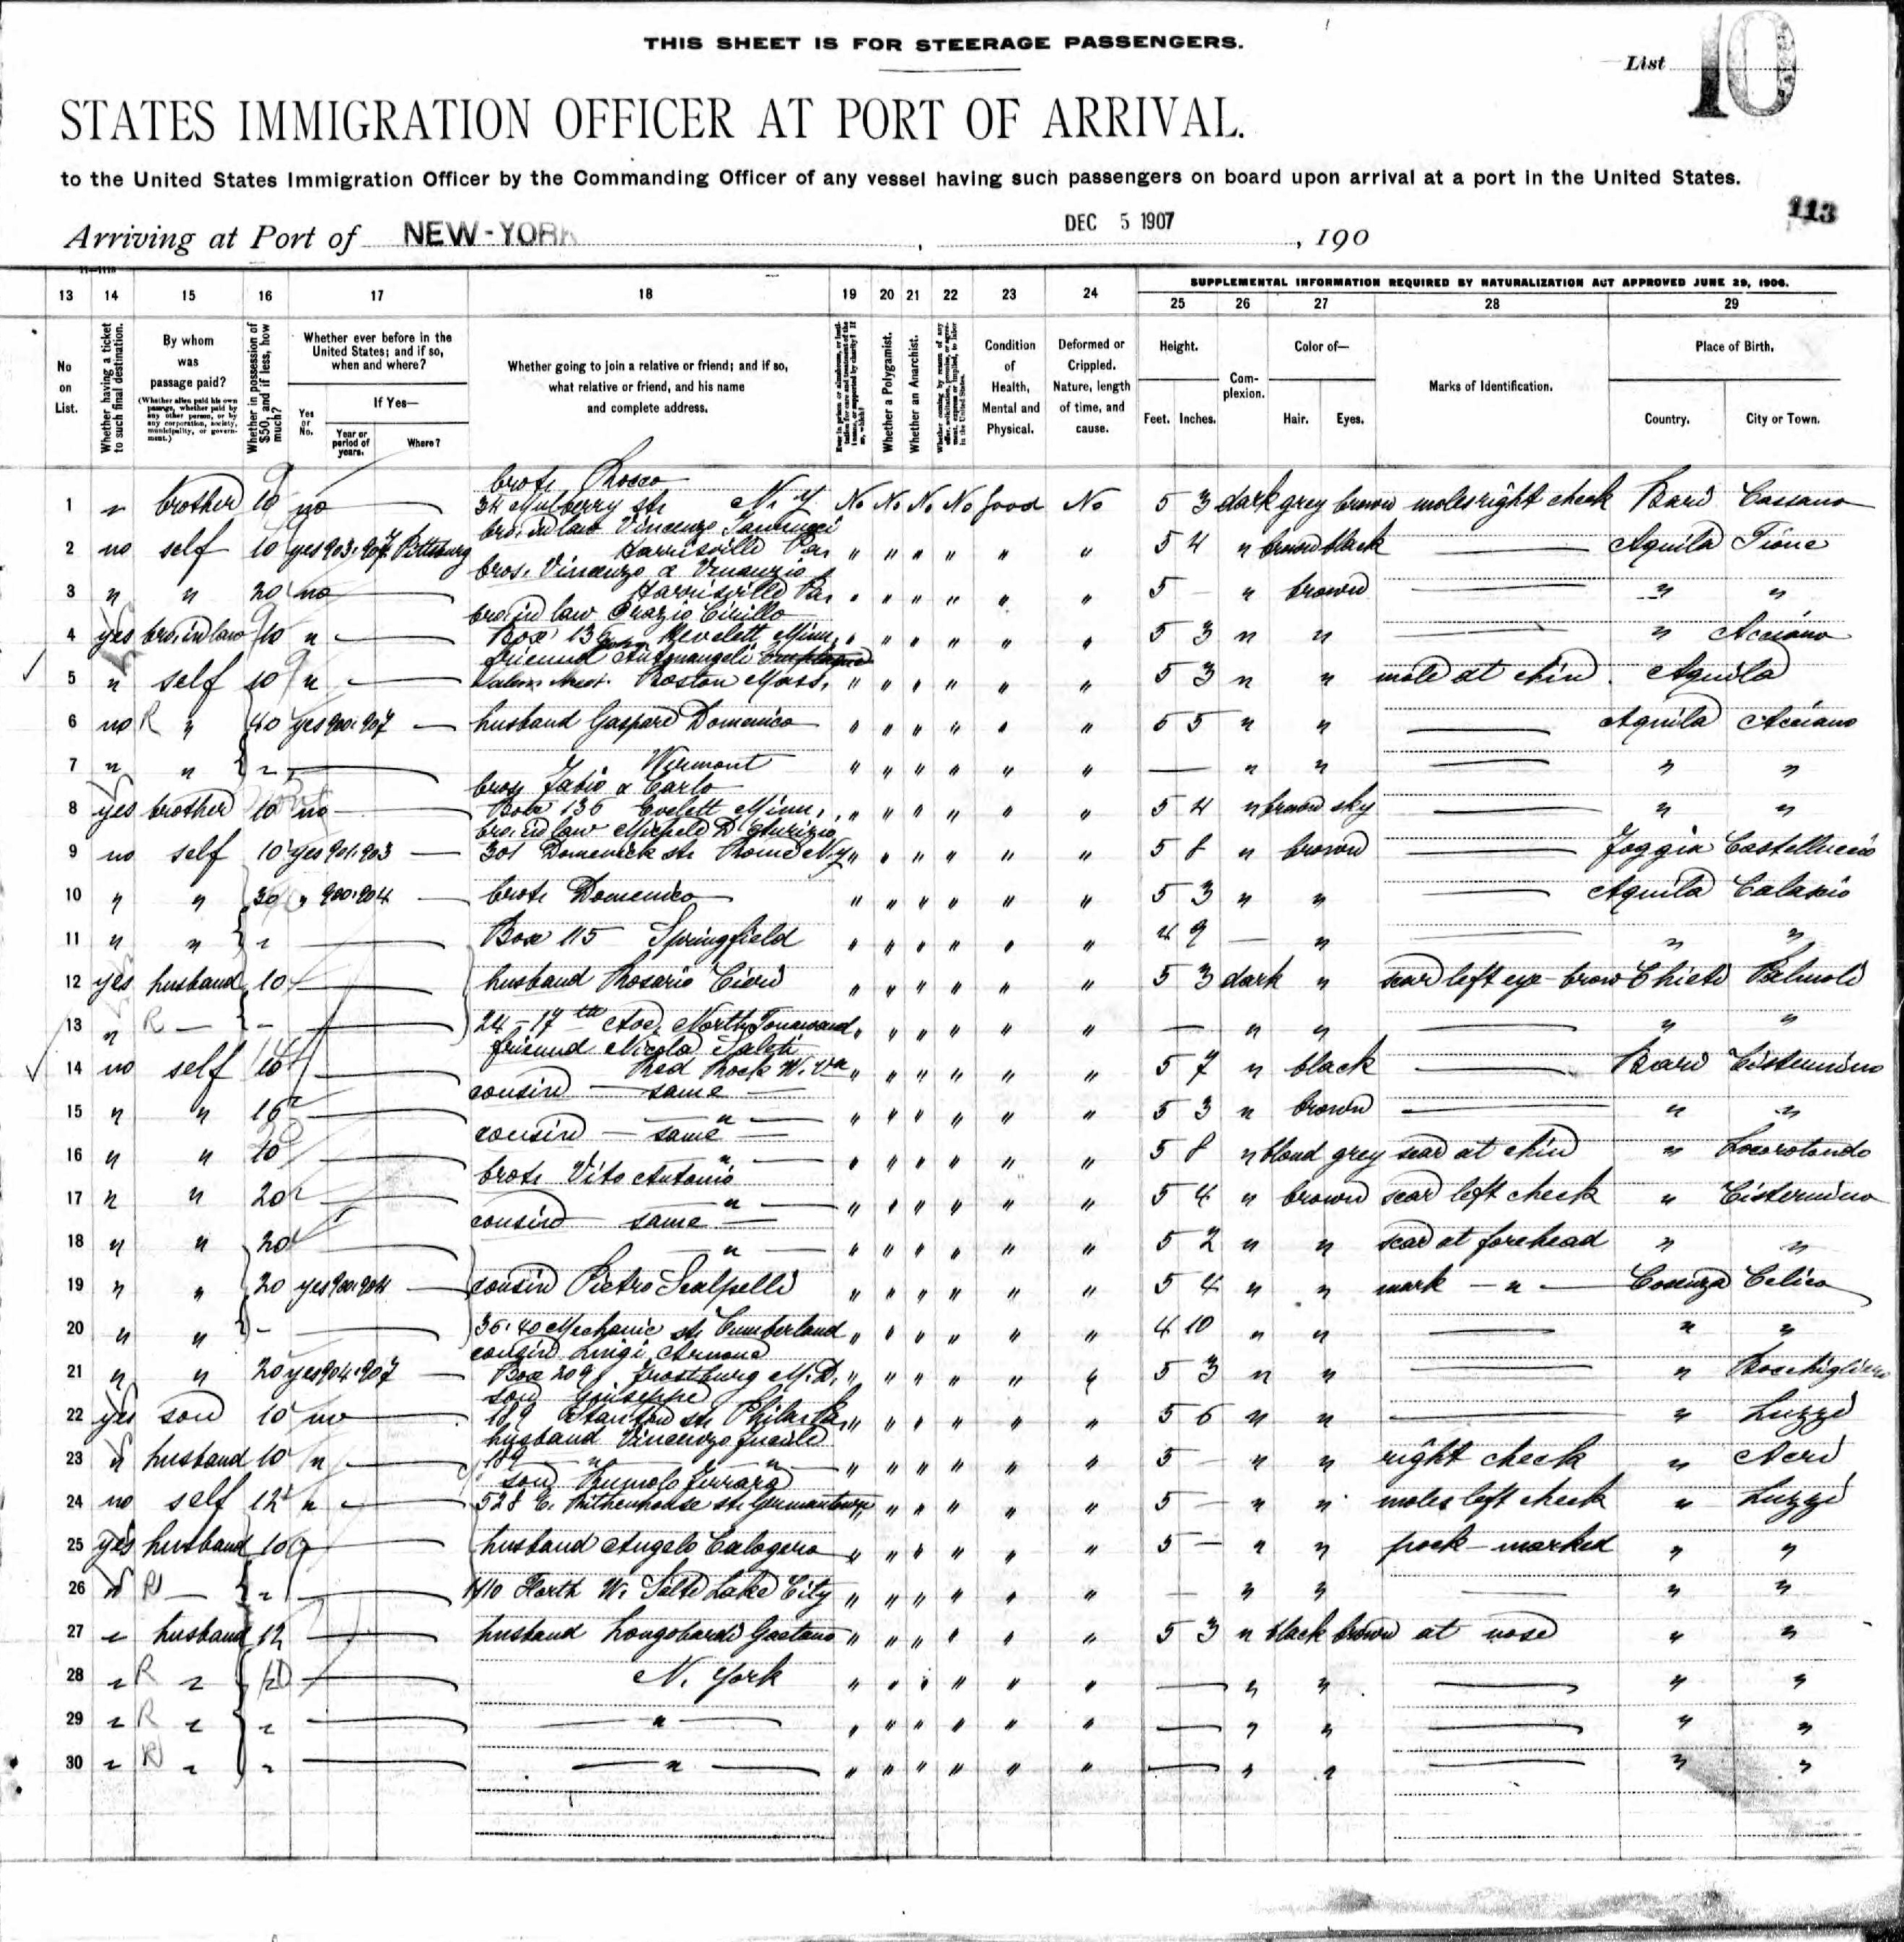 THIS SHEET IS FOR STEERAGE PASSENGERS.
List 10
STATES IMMIGRATION OFFICER AT PORT OF ARRIVAL.
to the United States Immigration Officer by the Commanding Officer of any vessel having such passengers on board upon arrival at a port in the United States.
113
Arriving at Port of NEW-YORK, DEC 5 1907, 190
SUPPLEMENTAL INFORMATION REQUIRED BY NATURALIZATION ACT APPROVED JUNE 29, 1906.
13 14 15 16 17 18 19 20 21 22 23 24 25 26 27 28 29
No on List.
Whether having a ticket to such final destination.
By whom was passage paid?
(Whether alien paid his own passage, whether paid by any other person, or by any corporation, society, municipality, or government.)
Whether in possession of $50, and if less, how much?
Whether ever before in the United States; and if so, when and where?
Yes or No.
If Yes—
Year or period of years.
Where?
Whether going to join a relative or friend; and if so, what relative or friend, and his name and complete address.
Whether a Polygamist.
Whether an Anarchist.
Condition of Health, Mental and Physical.
Deformed or Crippled. Nature, length of time, and cause.
Height.
Feet. Inches.
Complexion.
Color of—
Hair. Eyes.
Marks of Identification.
Place of Birth.
Country. City or Town.
brot. Rocco
1 " brother 10 no — 34 Mulberry str. N.Y. No No No No good No 5 3 dark grey brown moles right cheek Bari Cassano
bro. in law Vincenzo
2 no self 10 yes 903.907 Pittsburg Harrisville Pa. " " " " " " 5 4 " brown black — Aquila Tione
bros. Vincenzo & Venanzio
3 " " 20 no — Harrisville Pa. " " " " " " 5 — " brown — " "
bro. in law Orazio Cirillo
4 yes bro. in law 10 " — Box 136 Minn. " " " " " " 5 3 " " — " Acciano
friend
5 " self 10 " — Boston Mass. " " " " " " 5 3 " " mole at chin Aquila
6 no R " 40 yes 900.907 — husband Gaspare Domenico " " " " " " 5 5 " " — Aquila Acciano
7 " " " — Wermont " " " " " " — " " — " "
bros. Fabio & Carlo
8 yes brother 10 no — Box 136 Evelett Minn. " " " " " " 5 4 " brown sky — " "
bro. in law Michele
9 no self 10 yes 901.903 — 301 Domenick str. Rome N.Y. " " " " " " 5 8 " brown — Foggia Castelluccio
10 " " 30 " 900.904 — brot. Domenico " " " " " " 5 3 " " — Aquila Calascio
11 " " " — Box 115 Springfield " " " " " " 4 9 — " — " "
12 yes husband 10 — husband Rosario Cieri " " " " " " 5 3 dark " scar left eye-brow Chieti Palmoli
13 " R — - — 24-17th Ave. North Tonawand " " " " " " — " " — " "
friend Nicola
14 no self 10 — Red Rock W. Va " " " " " " 5 7 " black — Bari Cisternino
cousin — same —
15 " " 16 — " — " " " " " " 5 3 " brown — " "
cousin — same —
16 " " 10 — " — " " " " " " 5 8 " blond grey scar at chin " Locorotondo
brot. Vito Antonio
17 " " 20 — " — " " " " " " 5 4 " brown scar left cheek " Cisternino
cousin — same —
18 " " 20 — " — " " " " " " 5 2 " " scar at forehead " "
19 " " 20 yes 900.904 — cousin Pietro Scalpelli " " " " " " 5 4 " " mark — " — Cosenza Celico
20 " " - — 36.40 Mechanic str. Cumberland " " " " " " 4 10 " " — " "
cousin Luigi
21 " " 20 yes 904.907 — Box 209 Frostburg M.D. " " " " " " 5 3 " " — "
son Giuseppe
22 yes son 10 no — 189 str. Phila. Pa. " " " " " " 5 6 " " — " Luzzi
husband Vincenzo
23 " husband 10 " — 189 " " " " " " " " 5 — " " right cheek " Acri
son Ferraro
24 no self 12 " — 528 E. Rittenhouse str. Germantown " " " " " " 5 — " " moles left cheek " Luzzi
25 yes husband 10 — husband Angelo Calogero " " " " " " 5 — " " pock-marked " "
26 " R — " — North W. Salt Lake City " " " " " " — " " — " "
27 " husband 12 — husband Longobardi Gaetano " " " " " " 5 3 " black brown at nose " "
28 " R " — N. York " " " " " " — " " — " "
29 " R " " — — " — " " " " " " — " " — " "
30 " R " " — — " — " " " " " " — " " — " "